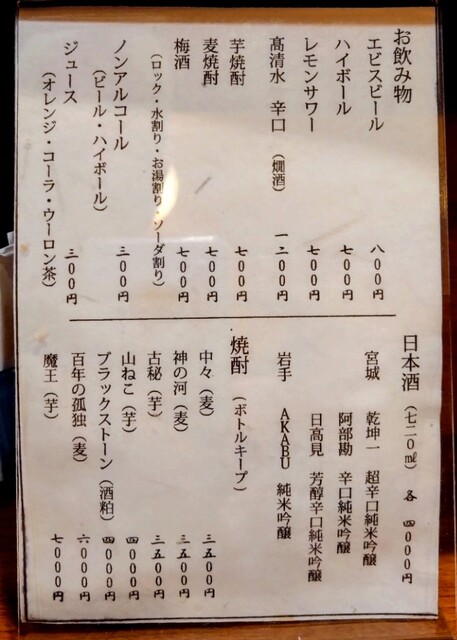 お飲み物
エビスビール 八００円
ハイボール 七００円
レモンサワー 七００円
髙清水 辛口 （燗酒） 一二００円
芋焼酎 七００円
麦焼酎 七００円
梅酒 七００円
（ロック・水割り・お湯割り・ソーダ割り）
ノンアルコール 三００円
（ビール・ハイボール）
ジュース 三００円
（オレンジ・コーラ・ウーロン茶）
日本酒 （七二０㎖） 各 四０００円
宮城 乾坤一 超辛口純米吟醸
阿部勘 辛口純米吟醸
日高見 芳醇辛口純米吟醸
岩手 ＡＫＡＢＵ 純米吟醸
焼酎 （ボトルキープ）
中々（麦） 三五００円
神の河（麦） 三五００円
古秘（芋） 三五００円
山ねこ（芋） 四０００円
ブラックストーン（酒粕） 四０００円
百年の孤独（麦） 六０００円
魔王（芋） 七０００円